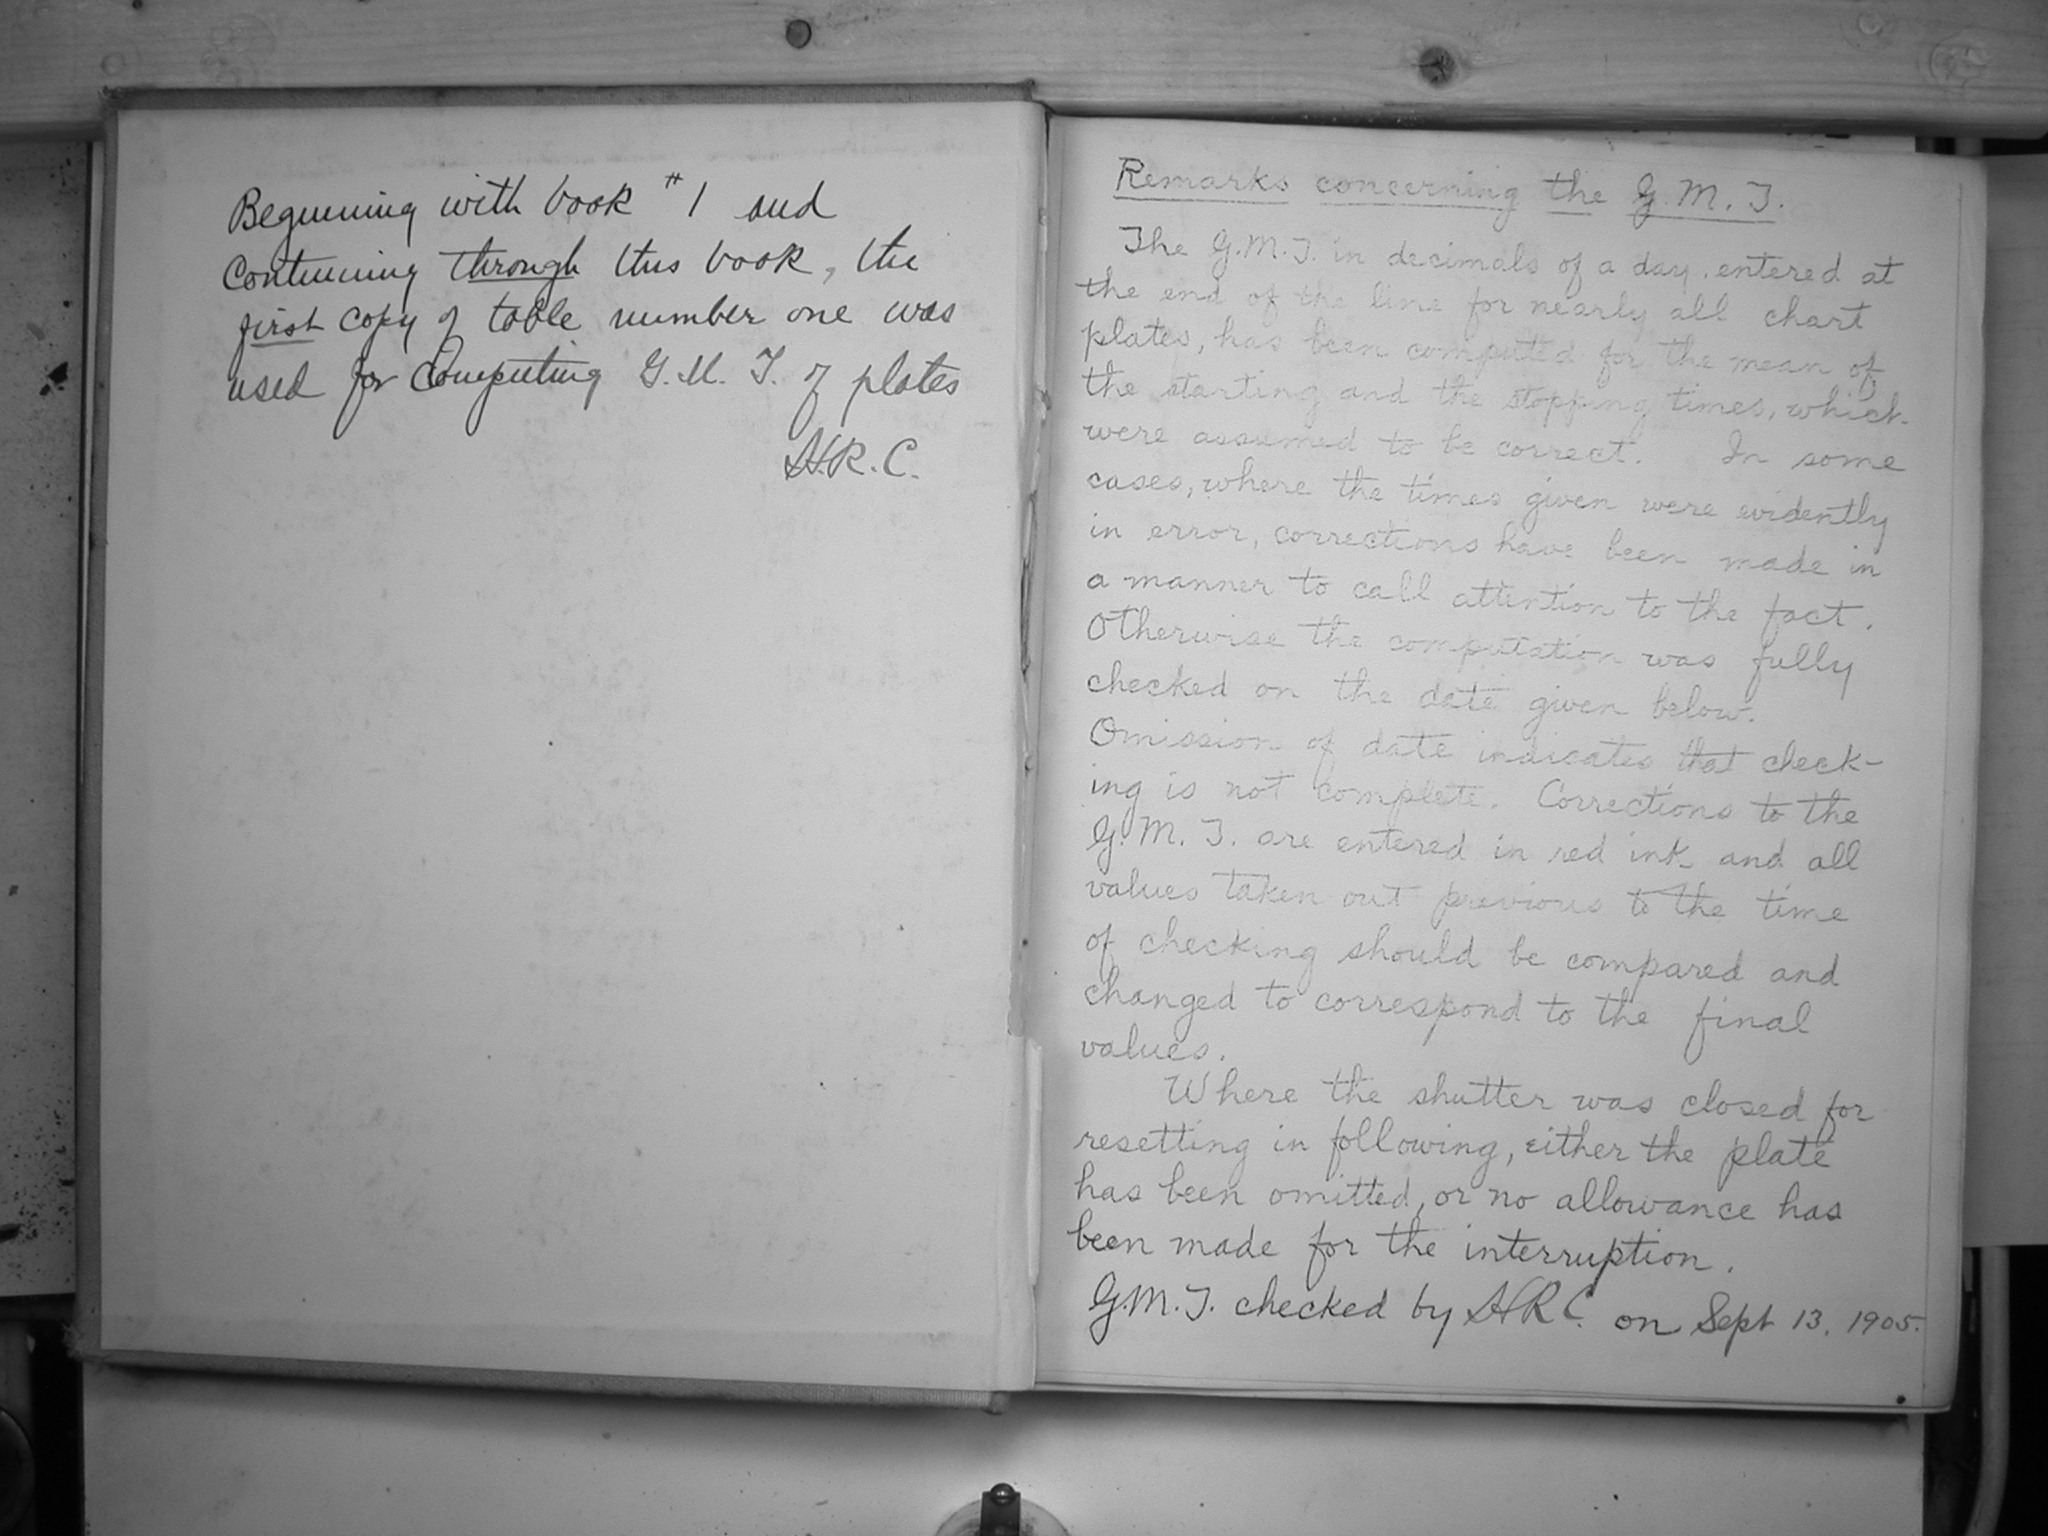 Beginning with book # 1 and
Continuing through this book, the
first copy of table number one was
used for Computing G. M. T. of plates
H.R.C.
Remarks concerning the G.M.T.
The G.M.T. in decimals of a day, entered at
the end of the line for nearly all chart
plates, has been computed for the mean of
the starting and the stopping times, which
were assumed to be correct. In some
cases, where the times given were evidently
in error, corrections have been made in
a manner to call attention to the fact.
Otherwise the computation was fully
checked on the date given below.
Omission of date indicates that check-
ing is not complete. Corrections to the
G.M.T. are entered in red ink and all
values taken out previous to the time
of checking should be compared and
changed to correspond to the final
values.
Where the shutter was closed for
resetting in following, either the plate
has been omitted, or no allowance has
been made for the interruption.
G.M.T. checked by H.R.C. on Sept 13, 1905.